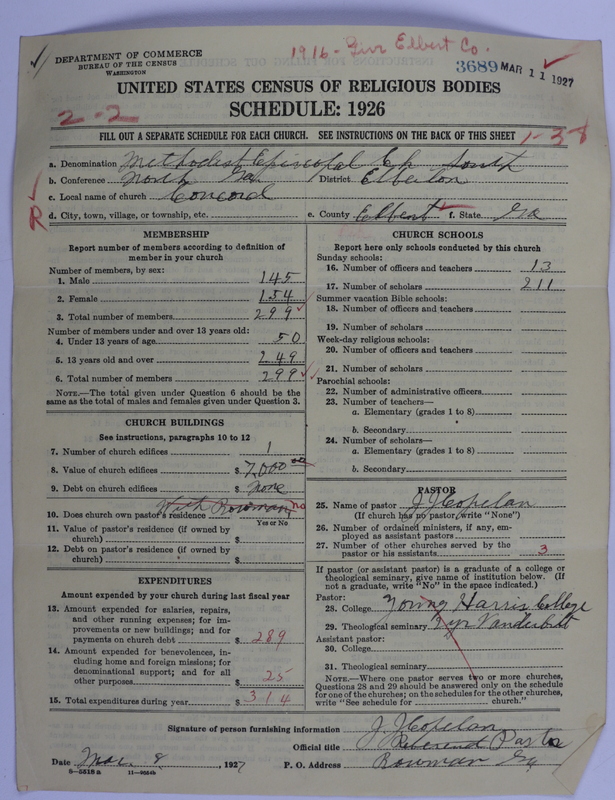 1916- Give Elbert Co.
DEPARTMENT OF COMMERCE
BUREAU OF THE CENSUS
WASHINGTON
3689 MAR 11 1927
UNITED STATES CENSUS OF RELIGIOUS BODIES
SCHEDULE: 1926
2-2
FILL OUT A SEPARATE SCHEDULE FOR EACH CHURCH. SEE INSTRUCTIONS ON THE BACK OF THIS SHEET
1-38
a. Denomination Methodist Episcopal Ch South
b. Conference North Ga. District Elberton
c. Local name of church Concord
R
d. City, town, village, or township, etc. e. County Elbert f. State Ga
MEMBERSHIP
Report number of members according to definition of
member in your church
Number of members, by sex:
1. Male 145
2. Female 154
3. Total number of members 299
Number of members under and over 13 years old:
4. Under 13 years of age 50
5. 13 years old and over 249
6. Total number of members 299
NOTE.—The total given under Question 6 should be
same as the total of males and females given under Question 3.
CHURCH BUILDINGS
See instructions, paragraphs 10 to 12
7. Number of church edifices 1
8. Value of church edifices $ 7,000 00
9. Debt on church edifices $ none
With Bowman no
10. Does church own pastor's residence
Yes or No
11. Value of pastor's residence (if owned by
church) $
12. Debt on pastor's residence (if owned by
church) $
EXPENDITURES
Amount expended by your church during last fiscal year
13. Amount expended for salaries, repairs,
and other running expenses; for im-
provements or new buildings; and for
payments on church debt $ 289
14. Amount expended for benevolences, in-
cluding home and foreign missions; for
denominational support; and for all
other purposes $ 25
15. Total expenditures during year $ 314
CHURCH SCHOOLS
Report here only schools conducted by this church
Sunday schools:
16. Number of officers and teachers 13
17. Number of scholars 211
Summer vacation Bible schools:
18. Number of officers and teachers
19. Number of scholars
Week-day religious schools:
20. Number of officers and teachers
21. Number of scholars
Parochial schools:
22. Number of administrative officers
23. Number of teachers—
a. Elementary (grades 1 to 8)
b. Secondary
24. Number of scholars—
a. Elementary (grades 1 to 8)
b. Secondary
PASTOR
25. Name of pastor J J Copelan
(If church has no pastor, write "None")
26. Number of ordained ministers, if any, em-
ployed as assistant pastors
27. Number of other churches served by the
pastor or his assistants 3
If pastor (or assistant pastor) is a graduate of a college or
theological seminary, give name of institution below. (If
not a graduate, write "No" in the space indicated.)
Pastor:
28. College Young Harris College
29. Theological seminary Vanderbilt
Assistant pastor:
30. College
31. Theological seminary
NOTE.—Where one pastor serves two or more churches,
Questions 28 and 29 should be answered only on the schedule
for one of the churches; on the schedules for the other churches,
write "See schedule for church."
Signature of person furnishing information J. J Copelan
Official title Reverend Pastor
Date Mar. 8, 1927 P. O. Address Bowman Ga
8-5518a 11-9564b